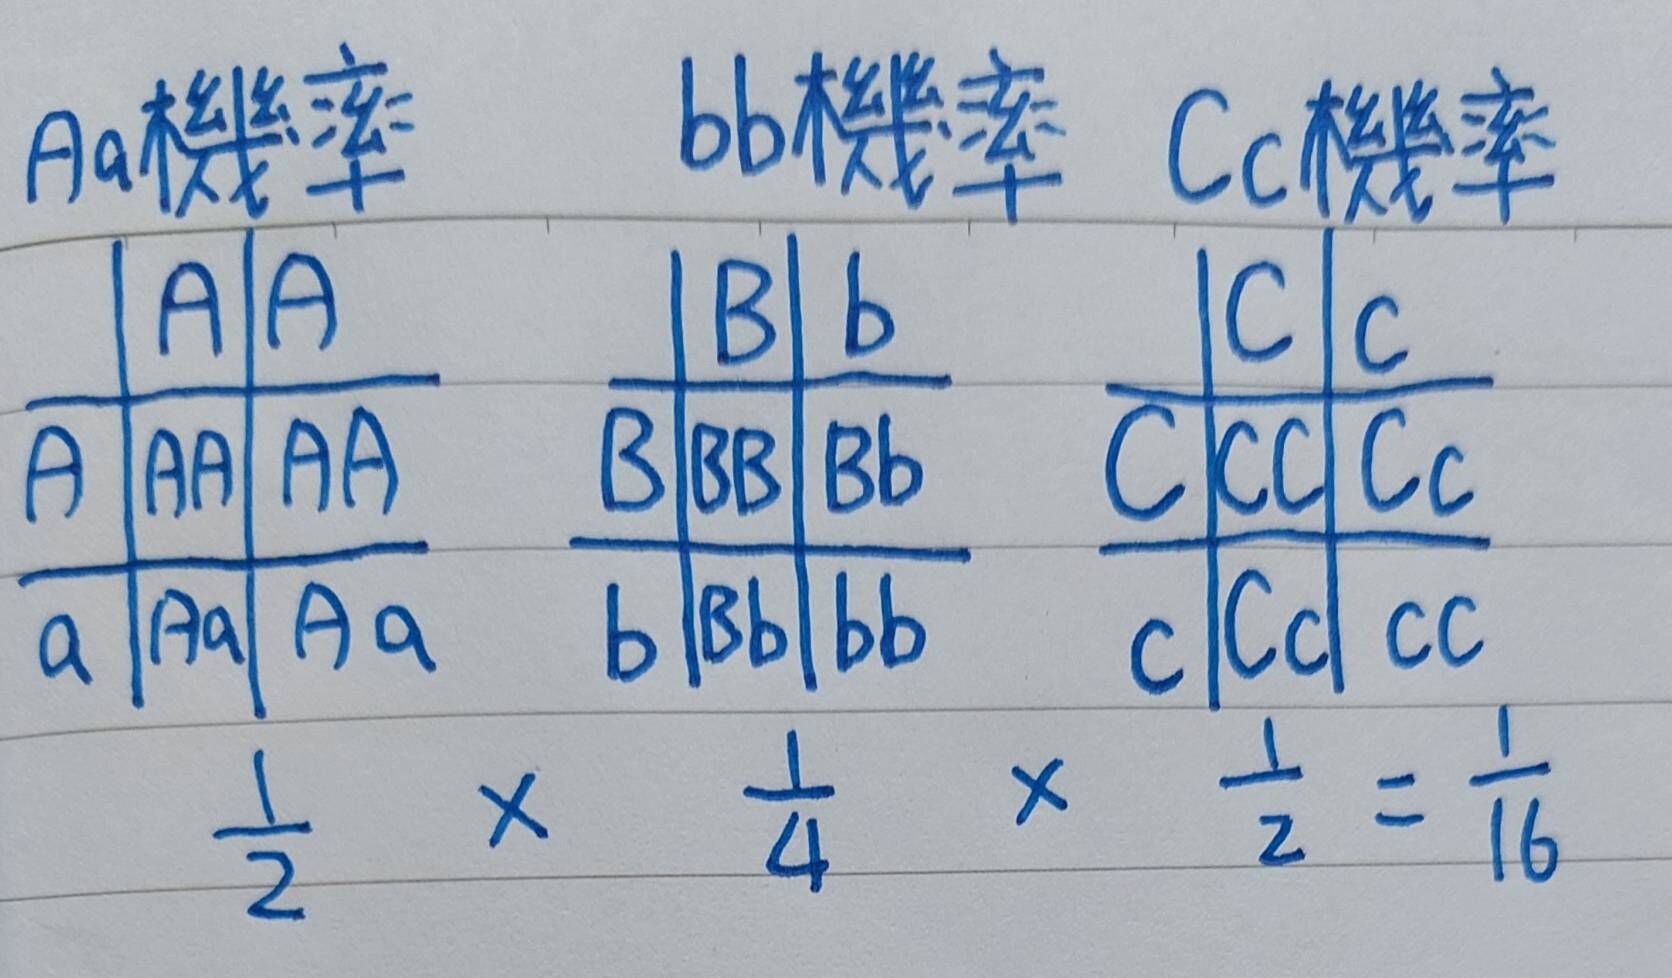 Aa機率 bb機率 Cc機率
A A B b C c
A AA AA B BB Bb C CC Cc
a Aa Aa b Bb bb c Cc cc
1/2 × 1/4 × 1/2 = 1/16